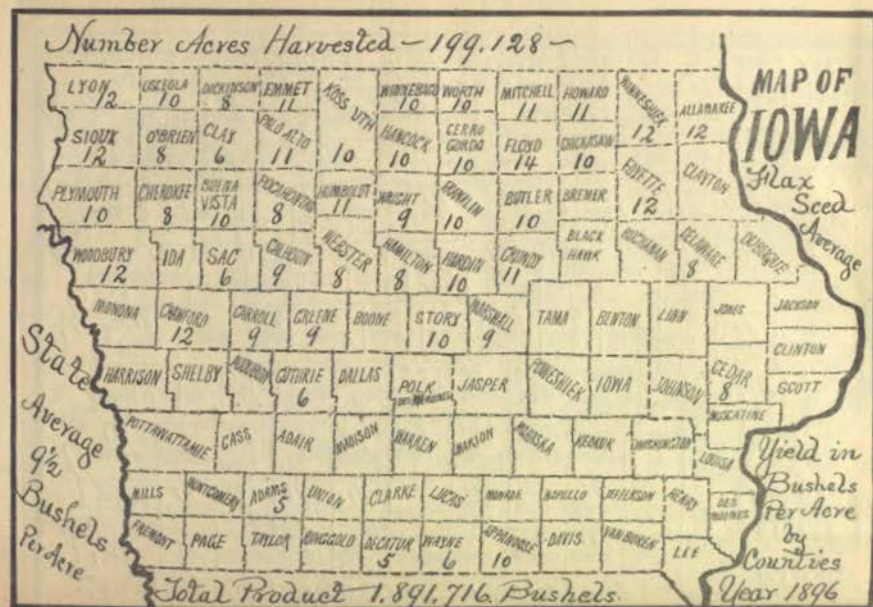 Number Acres Harvested - 199.128 -
MAP OF
IOWA
Flax
Seed
Average
LYON 12
OSCEOLA 10
DICKINSON 8
EMMET 11
KOSSUTH 10
WINNEBAGO 10
WORTH 10
MITCHELL 11
HOWARD 11
WINNESHIEK 12
ALLAMAKEE 12
SIOUX 12
O'BRIEN 8
CLAY 6
PALO ALTO 11
HANCOCK 10
CERRO GORDO 10
FLOYD 14
CHICKASAW 10
FAYETTE 12
CLAYTON
PLYMOUTH 10
CHEROKEE 8
BUENA VISTA 10
POCAHONTAS 8
HUMBOLDT 11
WRIGHT 9
FRANKLIN 10
BUTLER 10
BREMER
WOODBURY 12
IDA
SAC 6
CALHOUN 9
WEBSTER 8
HAMILTON 8
HARDIN 10
GRUNDY 11
BLACK HAWK
BUCHANAN
DELAWARE 8
DUBUQUE
MONONA
CRAWFORD 12
CARROLL 9
GREENE 9
BOONE
STORY 10
MARSHALL 9
TAMA
BENTON
LINN
JONES
JACKSON
CLINTON
HARRISON
SHELBY
AUDUBON
GUTHRIE 6
DALLAS
POLK
DES MOINES
JASPER
POWESHIEK
IOWA
JOHNSON
CEDAR 8
SCOTT
MUSCATINE
POTTAWATTAMIE
CASS
ADAIR
MADISON
WARREN
MARION
MAHASKA
KEOKUK
WASHINGTON
LOUISA
MILLS
MONTGOMERY
ADAMS 5
UNION
CLARKE
LUCAS
MONROE
WAPELLO
JEFFERSON
HENRY
DES MOINES
FREMONT
PAGE
TAYLOR
RINGGOLD
DECATUR 5
WAYNE 6
APPANOOSE 10
DAVIS
VAN BUREN
LEE
State
Average
9 1/2
Bushels
Per Acre
Yield in
Bushels
Per Acre
by
Counties
Year 1896
Total Product 1.891.716. Bushels.